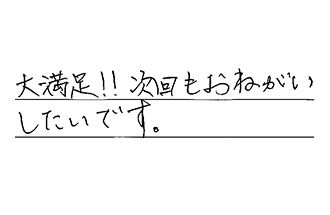 大満足!! 次回もおねがい
したいです。